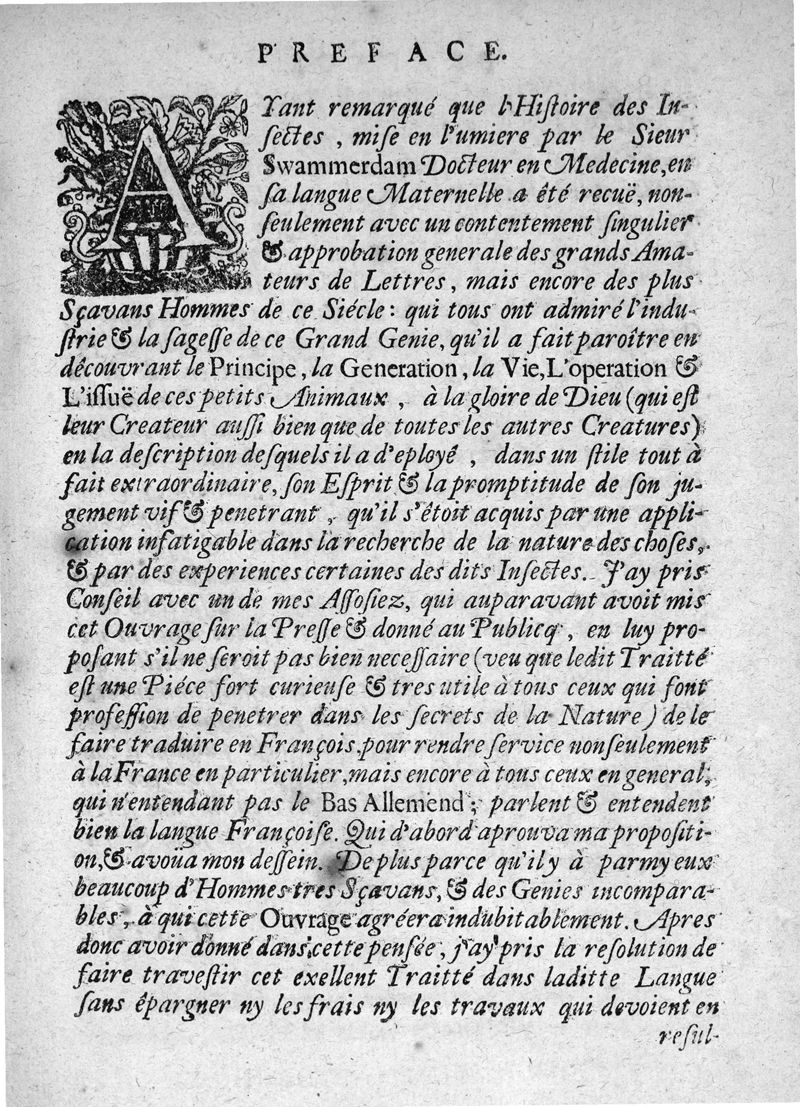 PREFACE.
AYant remarqué que l'Hiſtoire des In-
ſectes, miſe en l'umiere par le Sieur
Swammerdam Docteur en Medecine, en
ſa langue Maternelle a été recuë, non-
ſeulement avec un contentement ſingulier
& approbation generale des grands Ama-
teurs de Lettres, mais encore des plus
Sçavans Hommes de ce Siécle: qui tous ont admiré l'indu-
ſtrie & la ſageſſe de ce Grand Genie, qu'il a fait paroître en
découvrant le Principe, la Generation, la Vie, L'operation &
L'iſſuë de ces petits Animaux, à la gloire de Dieu (qui eſt
leur Createur auſſi bien que de toutes les autres Creatures)
en la deſcription deſquels il a d'eployé, dans un ſtile tout à
fait extraordinaire, ſon Eſprit & la promptitude de ſon ju-
gement vif & penetrant, qu'il s'étoit acquis par une appli-
cation infatigable dans la recherche de la nature des choſes,
& par des experiences certaines des dits Inſectes. J'ay pris
Conſeil avec un de mes Aſſoſiez, qui auparavant avoit mis
cet Ouvrage ſur la Preſſe & donné au Publicq, en luy pro-
poſant s'il ne ſeroit pas bien neceſſaire (veu que ledit Traitté
eſt une Piéce fort curieuſe & tres utile à tous ceux qui font
profeſſion de penetrer dans les ſecrets de la Nature) de le
faire traduire en François, pour rendre ſervice nonſeulement
à la France en particulier, mais encore à tous ceux en general,
qui n'entendant pas le Bas Allemend, parlent & entendent
bien la langue Françoiſe. Qui d'abord aprouva ma propoſiti-
on, & avoüa mon deſſein. De plus parce qu'il y à parmy eux
beaucoup d'Hommes tres Sçavans, & des Genies incompara-
bles, à qui cette Ouvrage agréera indubitablement. Apres
donc avoir donné dans cette penſée, j'ay pris la reſolution de
faire traveſtir cet exellent Traitté dans laditte Langue
ſans épargner ny les frais ny les travaux qui devoient en
reſul-